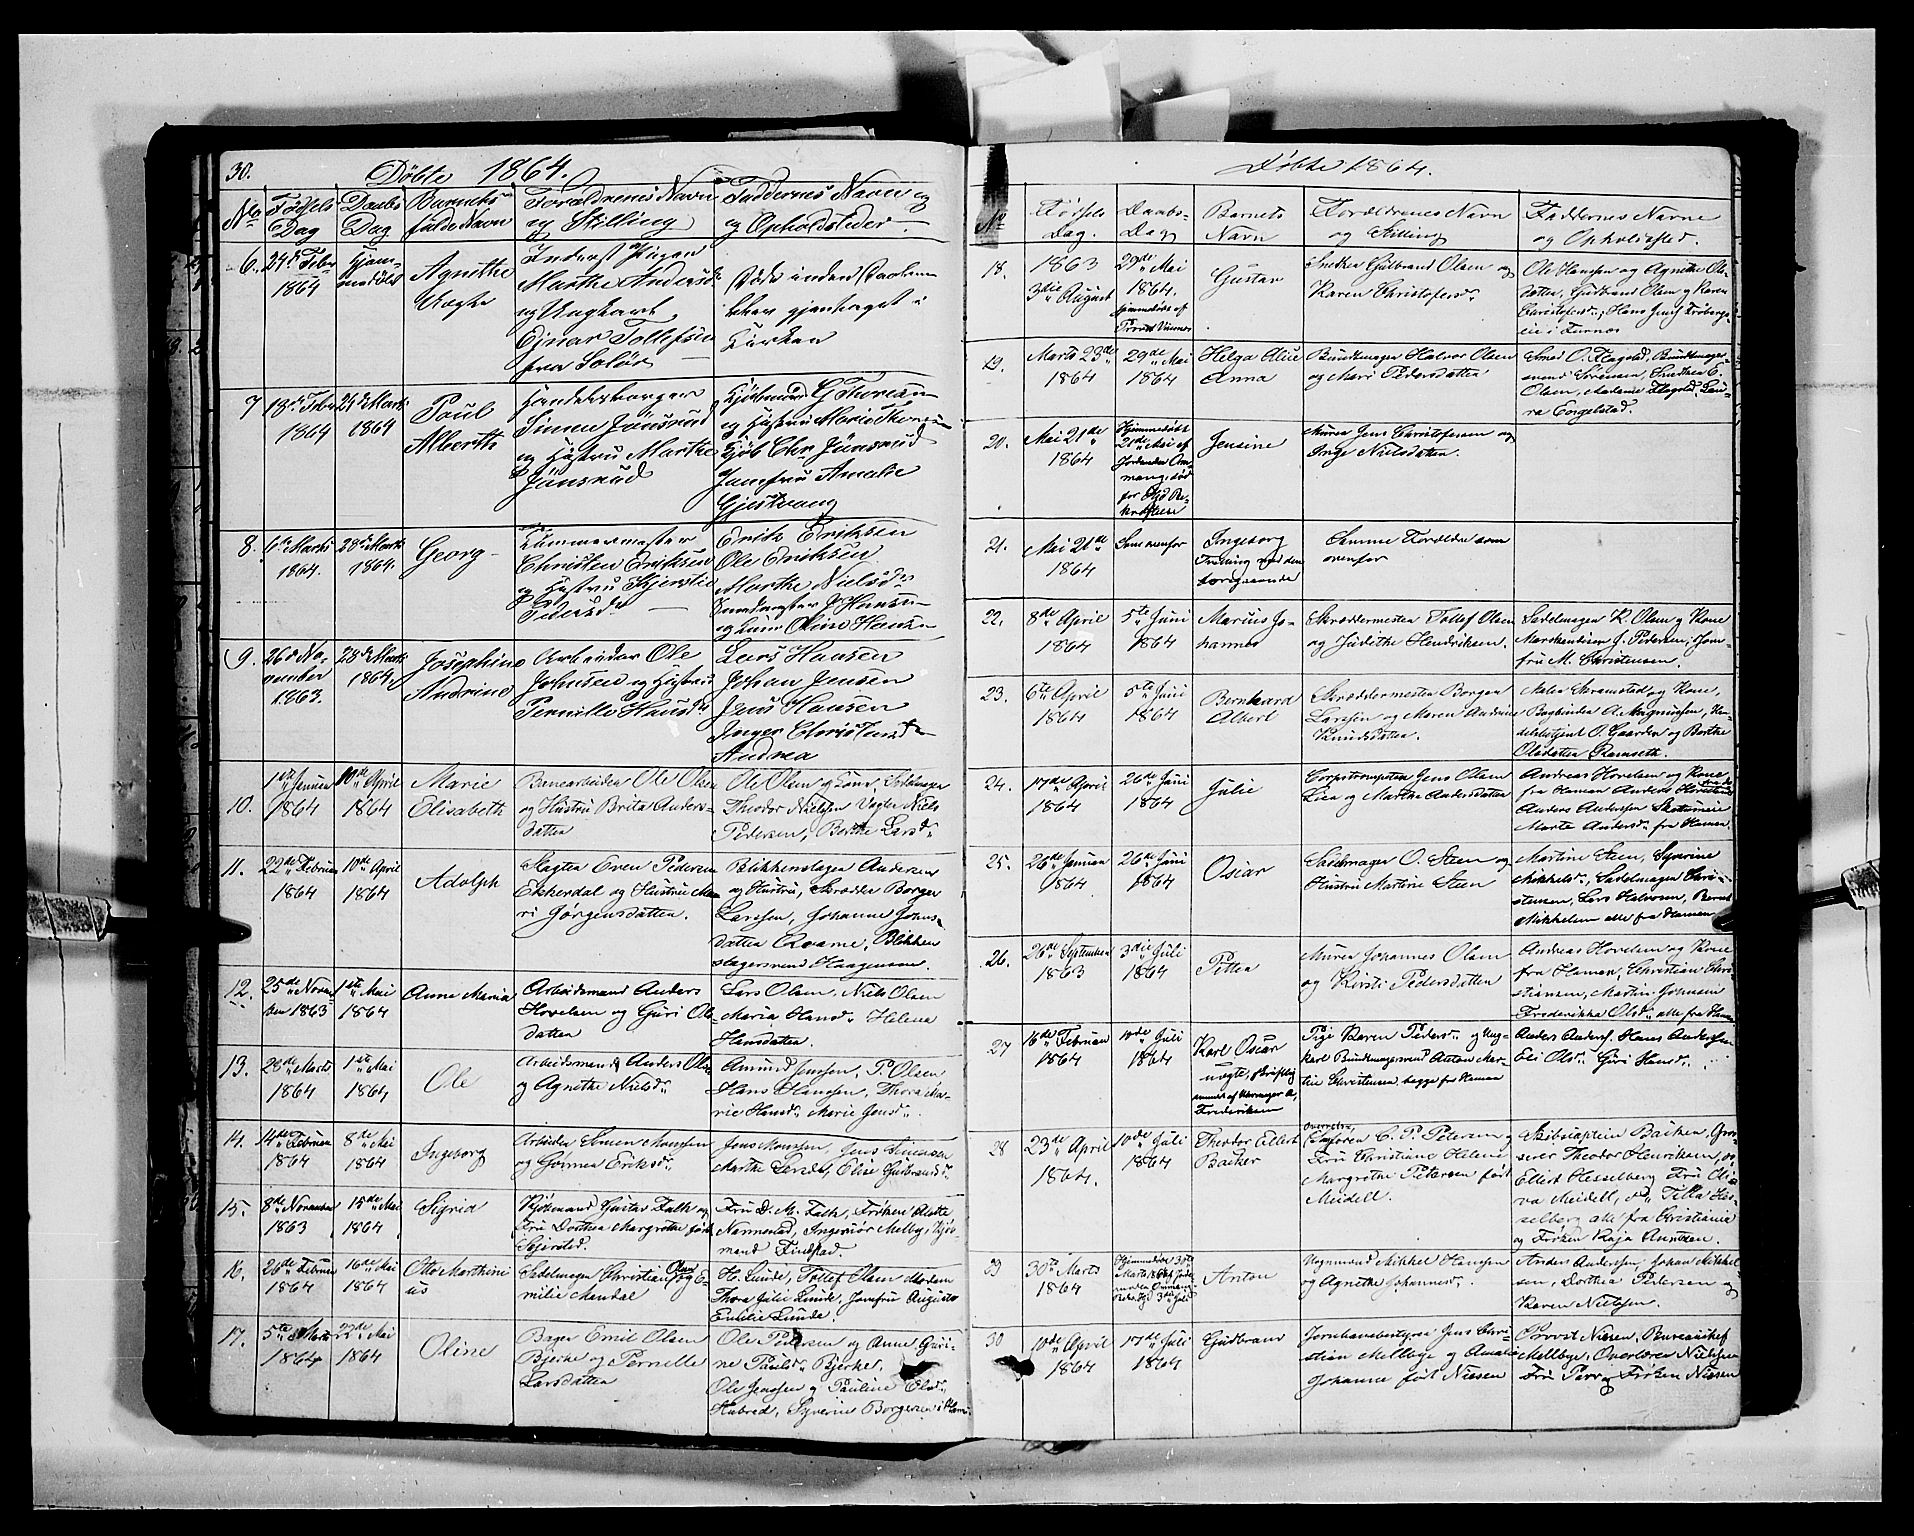 30. Döbte 1864.
No Födsels Dag Daabs Dag Barnets fulde Navn Forældrenes Navn og Stilling Faddernes Navn og Opholdsteder.
6. 24d Febr 1864 Hjemmedöbt Agnethe Uægte
Inderst Pigen
Marthe Andersd.
og Ungkarl
Ejnar Tollefsen
fra Solör
Döde inden Daaben
blev gjentaget i
Kirken
7 18d Febr 1864 24d Marts 1864 Poul Alberth
Handelsborger
Simen Jönsrud
og Hustru Marthe
Jönsrud
Kjöbmand G Thoresen
og Hustru Marie Thoresen
Kjöb Chr Jönsrud
Jomfru Amalie
Gjestvang
8. 6te Marts 1864. 28d Marts 1864. Georg
Tömmermester
Christen Eriksen
og Hustru Kjersti
Pedersd.
Erik Eriksen
Ole Eriksen
Marthe Nielsd.
J Hansen
og Oline Hansen
9. 26d November 1863. 28d Marts 1864. Josephine Andrine
Arbeider Ole
Johnsen og Hustru
Pernille Hansd.
Lars Hansen
Johan Jensen
Jens Hansen
Inger Christensd.
Andrea
10. 1ste Januar 1864 10de April 1864 Marie Elisabeth
Banearbeider Ole Olsen
og Hustru Brita Anders-
datter
Ole Olsen og Kone, Sadelmager
Theodor Nielsen Vogter Niels
Pedersen, Berthe Larsd.
11. 22de Februar 1864 10de April 1864 Adolph
Slagter Even Pedersen
Ekherdal og Hustru Ma-
ri Jörgensdatter.
Blikkenslager Andersen
og Hustru, Skræder Borger
Larssen, Johanne Johns-
datter Qvame, Blikken-
slagersvend Haagensen.
12. 25de November 1863 1ste Mai 1864 Anne Maria
Arbeidsmand Anders
Hovelsen og Guri Ols-
datter
Lars Olsen, Niels Olsen
Maria Hansd. Helena
Hansdatter.
13. 28de Marts 1864 1ste Mai 1864 Ole
Arbeidsmand Anders Olsen
og Agnethe Nielsd.
Amund Jenssen, P. Olsen
Hans Hanssen, Thora Ma-
rie Hansd. Marie Jensd.
14. 14de Februar 1864 8de Mai 1864 Ingeborg
Arbeider Simen Monssen
og Gunnor Eriksd.
Jens Monssen, Jens Simensen
Marthe Larsd, Elise Gulbrandsd.
15. 8de November 1863 15de Mai 1864 Sigrid
Kjöbmand Gustav Falk og
Fru Dorthea Margrethe född
Sejersted.
Fru D. M. Falk, Fröken Aletta
Nannestad, Ingeniör Melbye, Kjöb-
mand Findstad.
16. 26de Februar 1864 16de Mai 1864 Otto Marthini us
Sadelmager Christian Olsen og E-
milie Mandal
H. Lunde, Tollef Olsen Madam
Thora Julie Lunde, Jomfru Augusta
Emilie Lunde.
17. 5te Marts 1864 22de Mai 1864 Oline
Bager Emil Olsen
Bjerke og Pernelle
Larsdatter
Ole Pedersen og Anne Guri-
ne Paulsd. Bjerke.
Ole Jenssen og Pauline Elvd.
Hubred, Syverin Borgersen i Hamar
Döbte 1864.
No Födsels Dag. Daabs- Dag Barnets Navn Forældrenes Navn og Stilling Faddernes Navne og Opholdssted.
18. 1863 3die August 29de Mai 1864. hjemmedöbt af Provst Gustav
Snedker Gulbrand Olsen og
Karen Christofersd.
Ole Hansen og Agnethe Ols-
datter, Gulbrand Olsen og Karen
Christofersd., Hans Jensf Fröbergs-
eie i Furnes
19. Marts 23de 1864 29de Mai 1864 Helga Alice Anna
Bundtmager Halvor Olsen
og Mari Pedersdatter
Smed O. Flagstad, Bundtmager-
svend Sörensen, Snedker C.
Olsen, Madame Flagstad, Lau-
ra Engelstad.
20. Mai 21de 1864 Hjemmedöbt 21de Mai af Jordemoder Am- mang, död för Daabens Be- kræftelse Jensine
Murer Jens Christofersen og
Inge Nielsdatter.
21. Mai 21de 1864 Som ovenfor Ingeborg Tvilling med den foregaaende
Samme Forældre som
ovenfor
22. 8de April 1864 5te Juni 1864 Marius Jo- hannes
Skræddermester Tollef Olsen
og Judithe Hendriksen.
Sadelmager K. Olsen og Kone
Marskandiser J. Pedersen, Jom-
fru M. Christensen.
23. 6te April 1864 5te Juni 1864 Bernhard Albert
Skræddermester Borger
Larssen og Maren Andrine
Knudsdatter.
Maler Skramstad og Kone,
Bogbinder A. Magnussen, Han-
delsbetjent O. Gaarder og Berthe
Olsdatter Ramseth.
24. 17de April 1864 26de Juni 1864 Julie
Corpstrompeter Jens Olsen
Lien og Marthe Andersdatter
Andreas Hovelsen og Kone
fra Hamar Anders Hovelsen
Anders Andersen
Marte Andersd. fra Hamar.
25. 26de Januar 1864 26de Juni 1864 Oscar
Sadelmager O. Steen og
Hustru Martine Steen
Martine Steen, Syverine
Mikkelsd., Sadelmager Chri-
stensen, Lars Halvorsen, Bernt
Mikkelsen alle fra Hamar
26. 26de September 1863 3die Juli 1864 Petter
Murer Johannes Olsen
og Kirsti Pedersdatter
Andreas Hovelsen og Kone
fra Hamar, Christian Chri-
stiansen, Martin Johnsen
Frederikke Olsd. alle fra Hamar
27 16de Februar 1864 10de Juli 1864 Karl Oscar uægte, Skriftlig anmeldt af Garmager A. Frederiksen
Pige Karen Pedersd. og Ung-
karl Bundtmagersvend Anton Mar-
tin Christensen, begge fra Hamar
Anders Andersf. Hans Anderssen
Eli Olsd., Guri Hansd.
28 23de April 1864. 10de Juli 1864 Theodor Ellert Backer
Overlærer C. P. Petersen og
Fru Christiane Helene
Margrethe Petersen född
Meidell.
Skibscaptein Backer, Gros-
serer Theodor Henriksen, og
Ellert Hesselberg Fru Oli-
va Meidell, do. Tilla Hes-
selberg alle fra Christiania
og Fröken Kaja Arntzen.
29 30te Marts 1864 Hjemmedöbt 30te Marts, 1864 af Jorde- moder Ammang, Bekr. 3die Juli Anton
Vognmand Mikkel Hanssen
og Agnethe Johannesd.
Anders Anderssen, Johan Mikkel-
sen, Dorthea Pedersen og
Karen Nielssen.
30 10de April 1864 17de Juli 1864 Gudbrand
Jernbanebestyrer Jens Chri-
stian Mellbye og Amalia
Johanne född Niesen
Provst Niesen, Bureauchef
Mellbye, Overlærer Nielssen
Fru Parr og Fröken Niesen